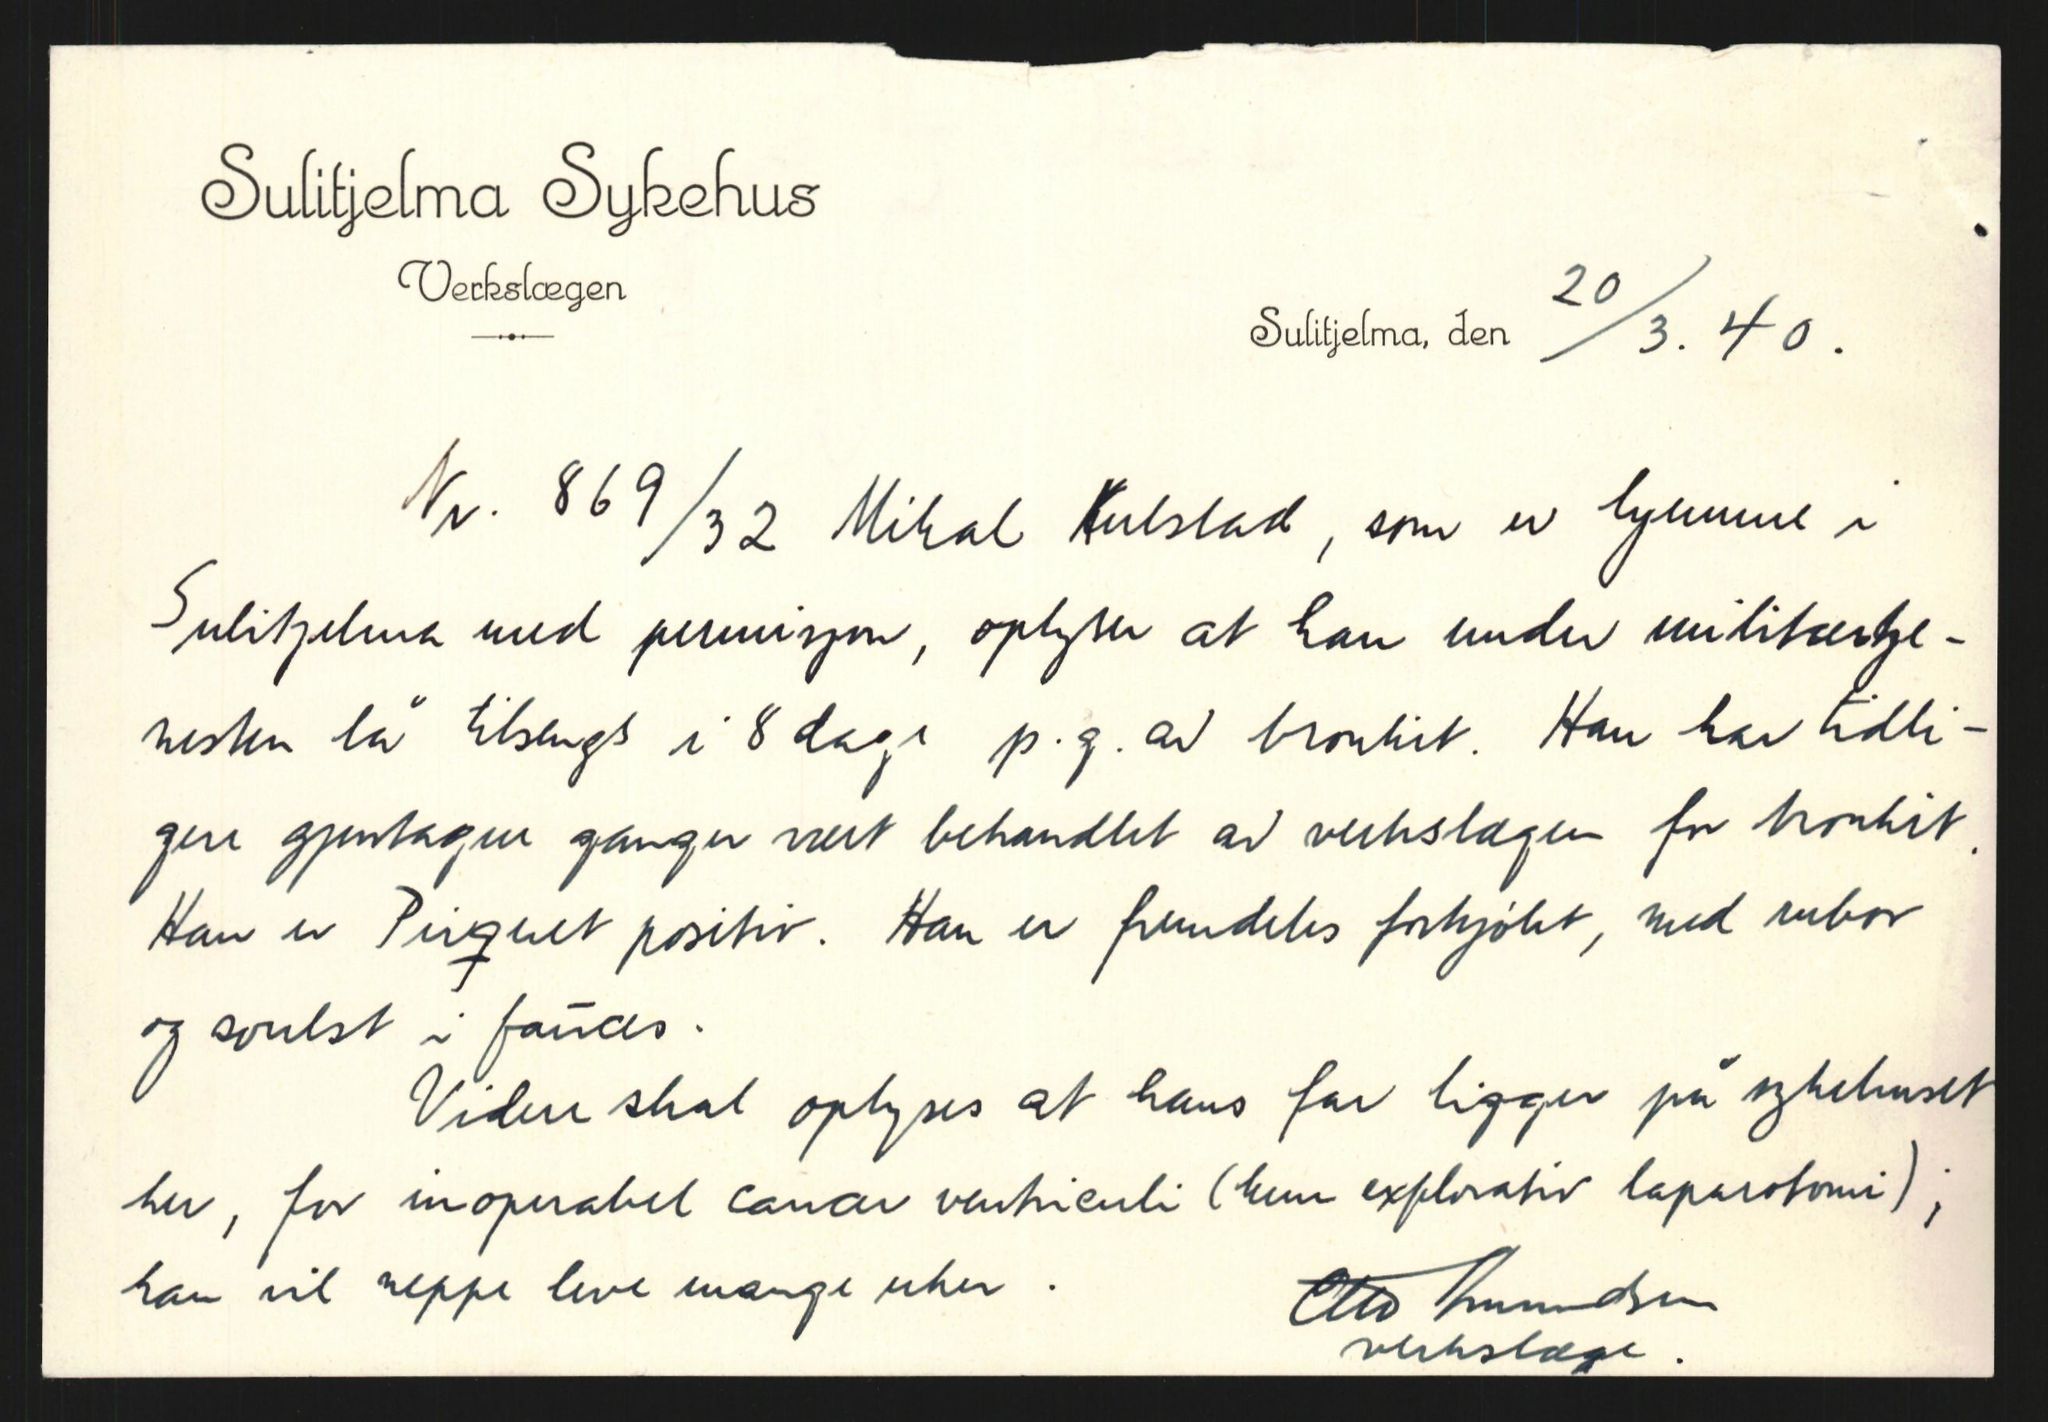 Sulitjelma Sykehus
Verkslægen
Sulitjelma, den 20/3. 40.
Nr. 869/32 Mikal Hulstad, som er hjemme i
Sulitjelma med permisjon, oplyser at han under militærtje-
nesten lå tilsengs i 8 dage p.g.av bronkit. Han har tidli-
gere gjentagne ganger vært behandlet av verkslægen for bronkit.
Han er Pirquet positiv. Han er fremdeles forkjølet, med rubor
og svulst i fauces.
Videre skal oplyses at hans far ligger på sykehuset
her, for inoperabel cancer ventriculi (kun explorativ laparotomi);
han vil neppe leve mange uker.
Otto
verkslæge.